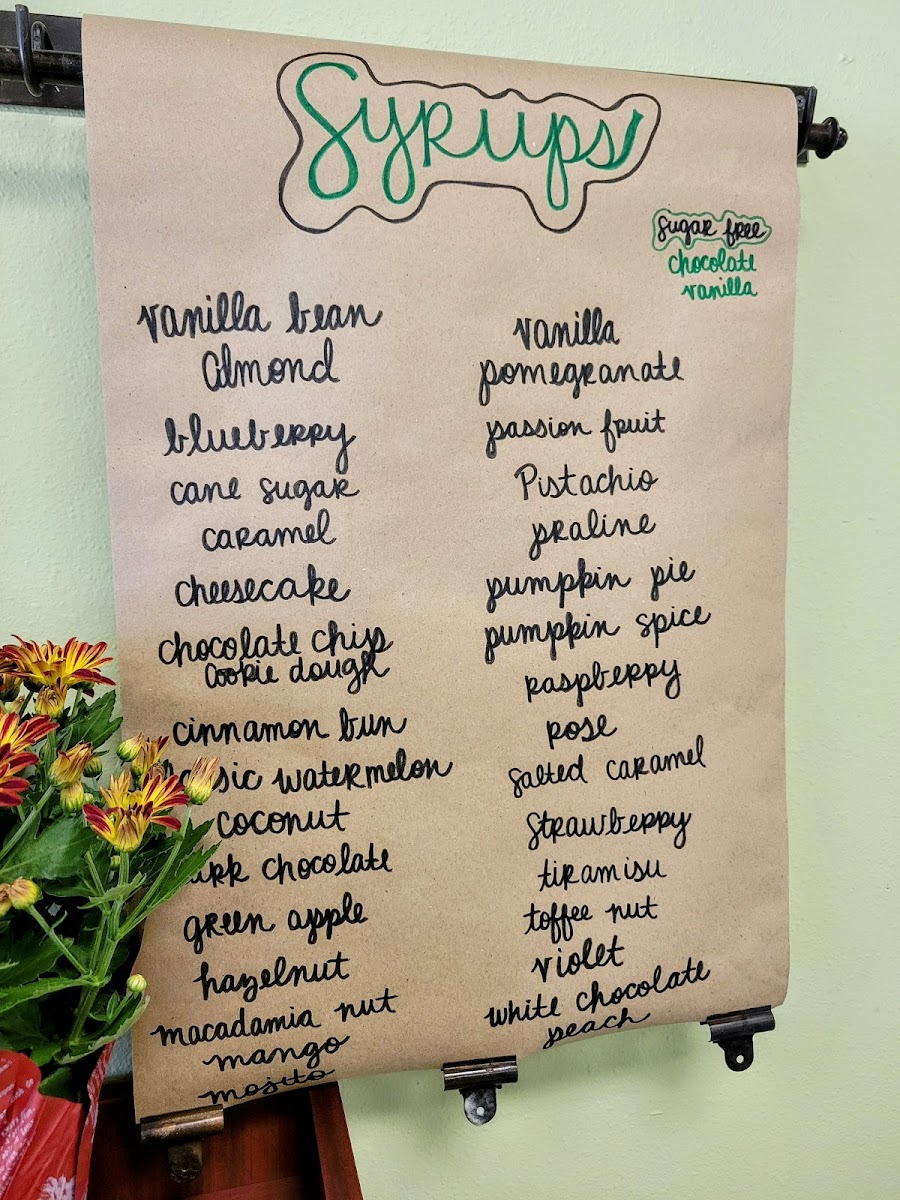 Syrups
sugar free
chocolate
vanilla
vanilla bean
Almond
blueberry
cane sugar
caramel
cheesecake
chocolate chip
cookie dough
cinnamon bun
watermelon
coconut
chocolate
green apple
hazelnut
macadamia nut
mango
mojito
vanilla
pomegranate
passion fruit
Pistachio
praline
pumpkin pie
pumpkin spice
raspberry
rose
salted caramel
strawberry
tiramisu
toffee nut
violet
white chocolate
peach